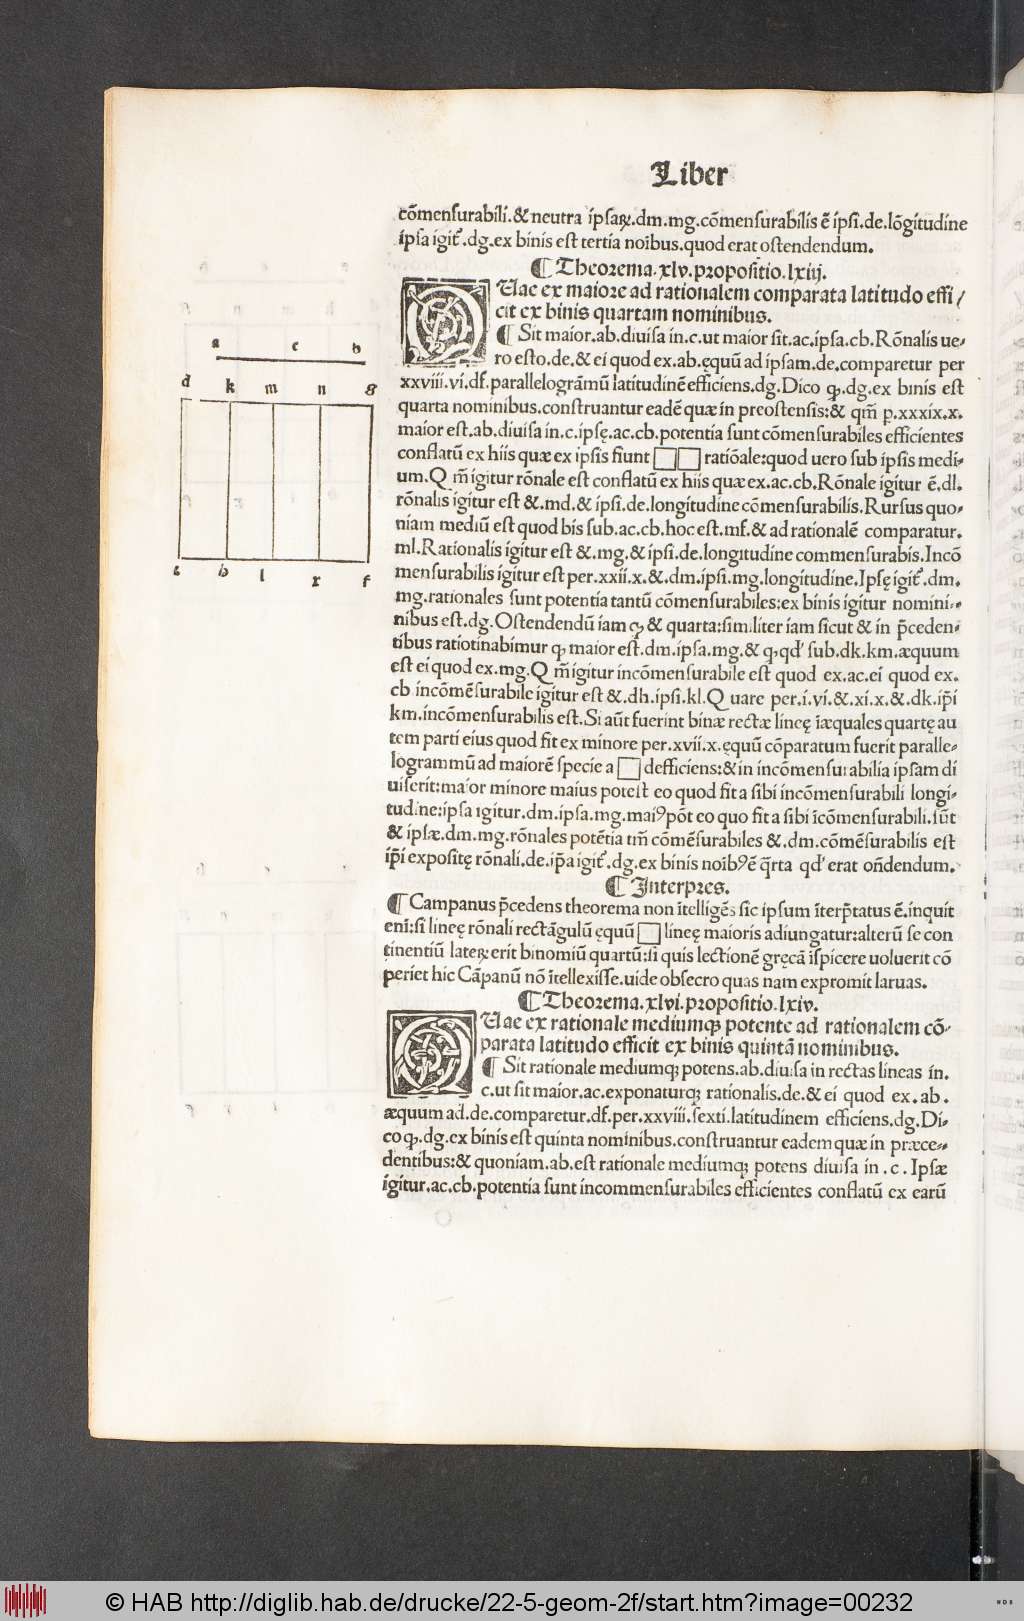 Liber
cõmensurabili.&neutra ipsaꝝ.dm.mg.cõmensurabilis ẽ ipsi.de.lõgitudine
ipsa igit᷑.dg.ex binis est tertia noĩbus.quod erat ostendendum.
¶ Theorema.xlv.propositio.lxiij.
QUae ex maiore ad rationalem comparata latitudo effi/
cit ex binis quartam nominibus.
¶ Sit maior.ab.diuisa in.c.ut maior sit.ac.ipsa.cb.Rõnalis ue-
ro esto.de.& ei quod ex.ab.ęquũ ad ipsam.de.comparetur per
xxviii.vi.df.parallelogrãmũ latitudinẽ efficiens.dg.Dico ꝙ.dg.ex binis est
quarta nominibus.construantur eadẽ quæ in preostensis:& qm̃ p.xxxix.x.
maior est.ab.diuisa in.c.ipsę.ac.cb.potentia sunt cõmensurabiles efficientes
conflatũ ex hiis quæ ex ipsis fiunt □□ ratiõale:quod uero sub ipsis medi-
um.Qm̃ igitur rõnale est conflatũ ex hiis quæ ex.ac.cb.Rõnale igitur ẽ.dl.
rõnalis igitur est &.md.& ipsi.de.longitudine cõmensurabilis.Rursus quo-
niam mediũ est quod bis sub.ac.cb.hoc est.mf.& ad rationalẽ comparatur.
ml.Rationalis igitur est &.mg.& ipsi.de.longitudine commensurabis.Incõ
mensurabilis igitur est per.xxii.x.&.dm.ipsi.mg.longitudine.Ipsę igit᷑.dm.
mg.rationales sunt potentia tantũ cõmensurabiles:ex binis igitur nomini-
nibus est.dg.Ostendendũ iam ꝙ & quarta:similiter iam sicut & in p̃ceden-
tibus ratiotinabimur ꝙ maior est.dm.ipsa.mg.& ꝙ qd' sub.dk.km.æquum
est ei quod ex.mg.Qm̃ igitur incõmensurabile est quod ex.ac.ei quod ex.
cb incõmẽsurabile igitur est &.dh.ipsi.kl.Quare per.i.vi.&.xi.x.&.dk.ip̃i
km.incõmensurabilis est.Si aũt fuerint binæ rectæ lineę iæquales quartę au
tem parti eius quod fit ex minore per.xvii.x.ęquũ cõparatum fuerit paralle-
logrammũ ad maiorẽ specie a □ defficiens:& in incõmensurabilia ipsam di
uiserit:maior minore maius potest eo quod fit a sibi incõmensurabili longi-
tudine:ipsa igitur.dm.ipsa.mg.maiꝰ põt eo quo fit a sibi ĩcõmensurabili.sũt
& ipsæ.dm.mg.rõnales potẽtia tm̃ cõmẽsurabiles &.dm.cõmẽsurabilis est
ip̃i expositę rõnali.de.ip̃a igit᷑.dg.ex binis noĩbꝰ ẽ q̃rta qd' erat oñdendum.
¶ Interpres.
¶ Campanus p̃cedens theorema non ĩtelligẽs sic ipsum ĩterp̃tatus ẽ.inquit
enĩ:si lineę rõnali rectãgulũ ęquũ □ lineę maioris adiungatur:alterũ se con
tinentiũ lateꝝ erit binomiũ quartũ:si quis lectionẽ gręcã ĩspicere uoluerit cõ
periet hic Cãpanũ nõ ĩtellexisse.uide obsecro quas nam expromit laruas.
¶ Theorema.xlvi.propositio.lxiv.
QUae ex rationale mediumqꝫ potente ad rationalem cõ-
parata latitudo efficit ex binis quintã nominibus.
¶ Sit rationale mediumqꝫ potens.ab.diuisa in rectas lineas in.
c.ut sit maior.ac.exponaturqꝫ rationalis.de.& ei quod ex.ab.
æquum ad.de.comparetur.df.per.xxviii.sexti.latitudinem efficiens.dg.Di-
co ꝙ.dg.ex binis est quinta nominibus.construantur eadem quæ in præce-
dentibus:& quoniam.ab.est rationale mediumqꝫ potens diuisa in.c.Ipsæ
igitur.ac.cb.potentia sunt incommensurabiles efficientes conflatũ ex earũ
a c b
d k m n g
e h l x f
© HAB http://diglib.hab.de/drucke/22-5-geom-2f/start.htm?image=00232